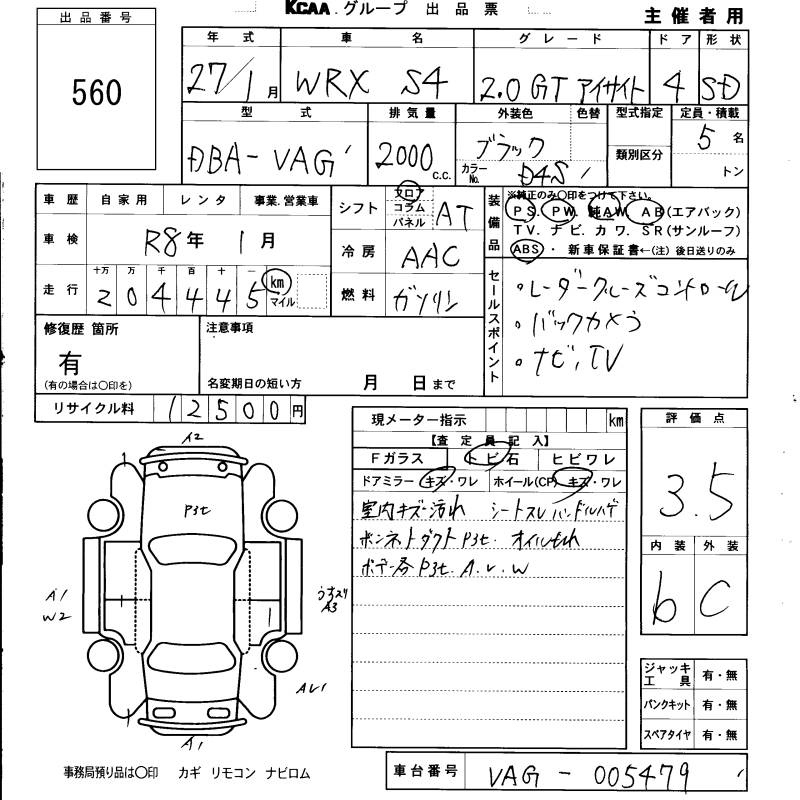 KCAA.グループ 出品票
主催者用
出品番号
560
年式 車名 グレード ドア 形状
27/1月 WRX S4 2.0GT アイサイト 4 SD
型式 排気量 外装色 色替 型式指定 定員・積載
DBA-VAG 2000 C.C. ブラック 類別区分 5名
カラーNo. D4S トン
車歴 自家用 レンタ 事業.営業車
車検 R8年 1月
走行 十万 万 千 百 十 一
204445 km マイル
シフト フロア コラム パネル AT
冷房 AAC
燃料 ガソリン
装備品 ※純正のみ〇印をつけて下さい。
PS. PW. 純AW. AB(エアバック)
TV. ナビ. カワ. SR(サンルーフ)
ABS ・ 新車保証書←(注)後日送りのみ
セールスポイント
・レーダークルーズコントロール
・バックカメラ
・ナビ,TV
修復歴 箇所
有
(有の場合は〇印を)
注意事項
名変期日の短い方 月 日まで
リサイクル料 12500円
現メーター指示 km
【査定員記入】
Fガラス トビ石 ヒビワレ
ドアミラー キズ・ワレ ホイール(CP) キズ・ワレ
室内キズ・汚れ シートスレ ハンドルハゲ
ボンネトダクト P3t. オイルもれ
ボデー各 P3t. A.U.W
評価点
3.5
内装 外装
b C
ジャッキ工具 有・無
パンクキット 有・無
スペアタイヤ 有・無
A2
1
P3t
A1
W2
1
1
A3
AU1
1
A1
事務局預り品は〇印 カギ リモコン ナビロム
車台番号 VAG - 005479